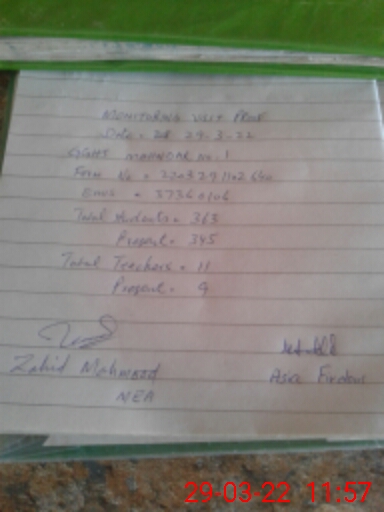 MONITORING VISIT PROOF
Date = 29-3-22
GGHS MAHNDAR No. 1
Form No = 
Emis = 37360106
Total Students = 363
Present = 345
Total Teachers = 11
Present = 9
Zahid Mahmood
Asia Firdous
MEA
29-03-22 11:57